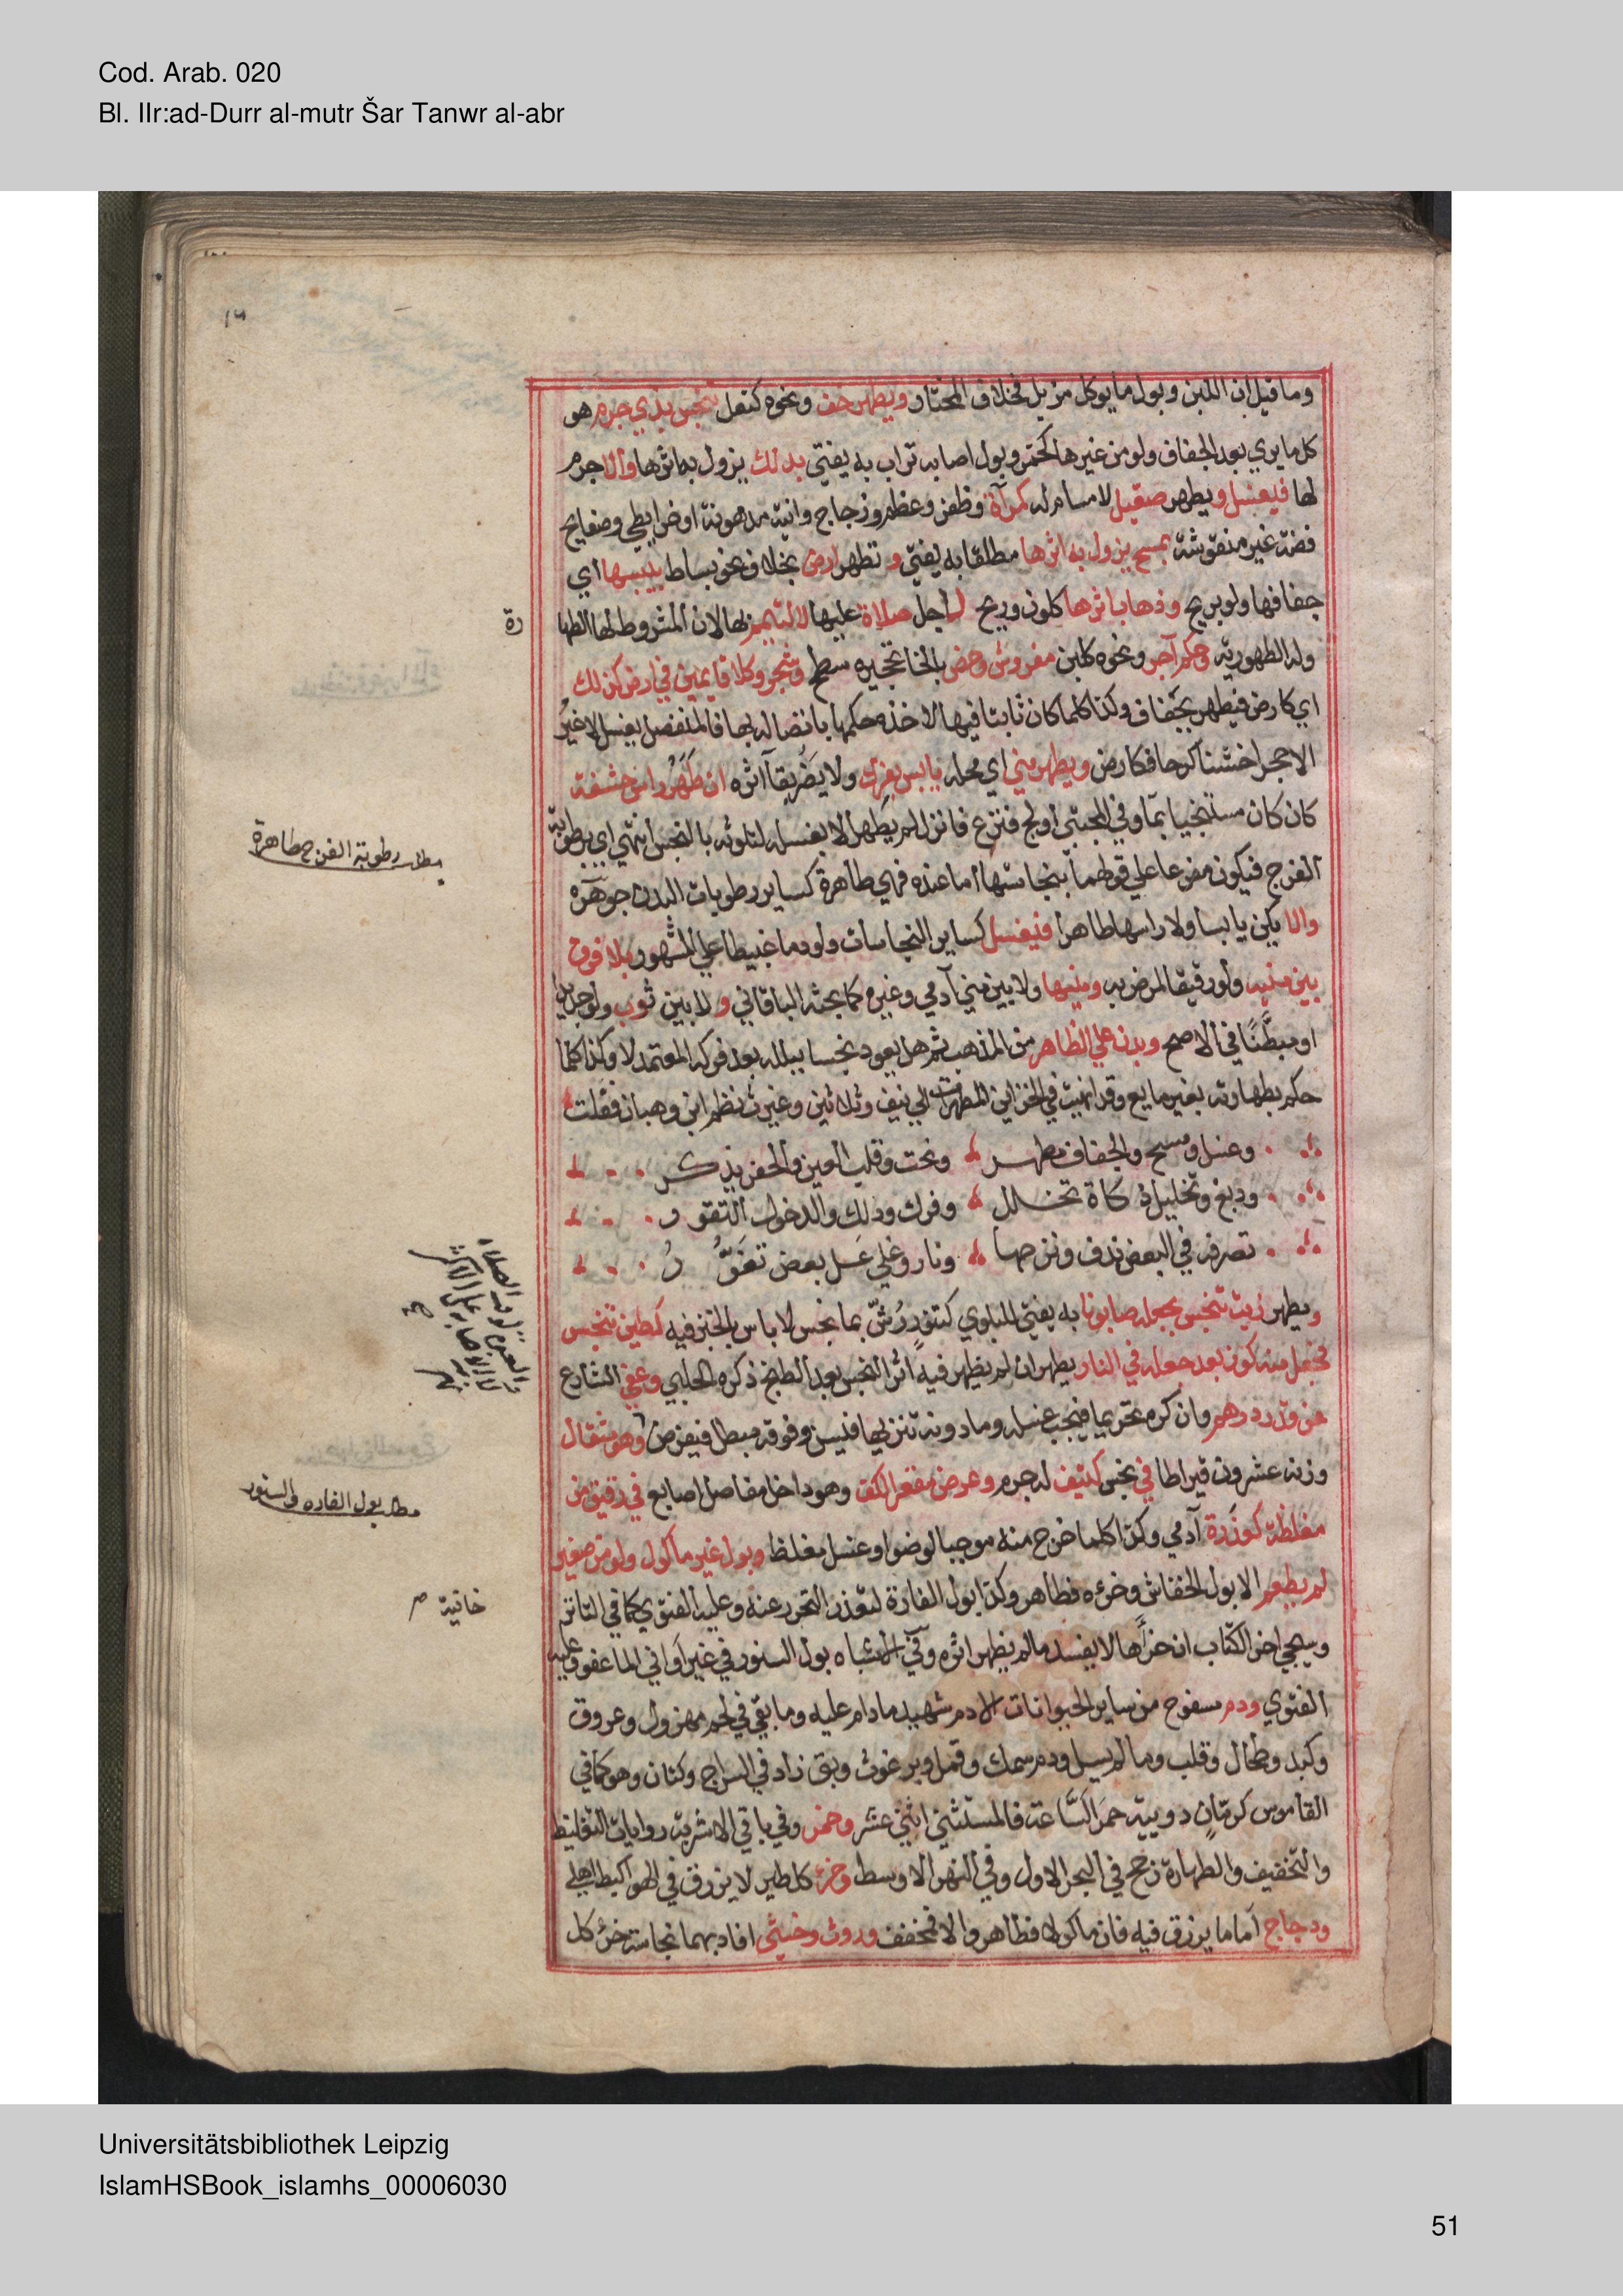 Cod. Arab. 020
Bl. IIr:ad-Durr al-mutr Šar Tanwr al-abr
وما قيل ان اللبن وبول ما يوكل مزيل فخلاف المختار ويطهر خف ونحوه كنعل تنجس بذي جرم هو
كل ما يري بعد الجفاف ولو من غيرها كخمر وبول اصابه تراب به يفتي بدلك يزول به اثرها والا جرم
لها فيغسل ويطهر صقيل لا مسام له كمرآة وظفر وعظم وزجاج وانية مدهونة او خراطي وصفايح
فضة غير منقوشة بمسح يزول به اثرها مطلقا به يفتي و تطهر ارض بخلاف نحو بساط بيبسها اي
جفافها ولو بريح وذهاب اثرها كلون وريح لاجل صلاة عليها لا لتيمم بها لان المشروط لها الطها
رة
وله الطهورية وحكم آجر ونحوه كلبن مفروش وخص بالخا تحجيره سطح وشجر وكلا قايمين في ارض كذلك
اي كارض فيطهر بجفاف وكذا كلما كان ثابتا فيها لاخذه حكمها باتصاله بها فالمنفصل يغسل لا غير
الا حجرا خشنا كرحا فكارض ويطهر مني اي محله يابس بفرك ولا يضر بقآ اثره ان طهر راس حشفة
كان كان مستنجيا بمآ وفي المجتبي اولج فنزع فانزل لم يطهر الا بغسله لتلوثه بالنجس انتهي اي برطوبة
مطلب رطوبة الفرج طاهرة
الفرج فيكون مفرعا علي قولهما بنجاستها اما عنده فهي طاهرة كساير رطوبات البدن جوهرة
والا يكن يابسا ولا راسها طاهرا فيغسل كساير النجاسات ولو دما غبيطا علي المشهور بلا فرق
بين منيه ولو رقيقا لمرض به ومنيها ولا بين مني آدمي وغيره كما بحثه الباقاني و لا بين ثوب ولو جديدا
او مبطنًا في الاصح وبدن علي الظاهر من المذهب ثم هل يعود نجسا ببلله بعد فركه المعتمد لا وكذا كلما
حكم بطهارته بغير مايع وقد انهيت في الخزاين المطهرات الي نيف وثلاثين وغيرت نظم ابن وهبان فقلت
وغسل ومسح والجفاف مطهر ونحت وقلب العين والحفر يذكر
ودبغ وتخليل ذكاة تخلل وفرك ودلك والدخول التقور
تصرفه في البعض ندف ونزحها ونار وغلي غسل بعض تقوَّرُ
ويطهر زيت تنجس بجعله صابونا به يفتي للبلوي كتنور رُشّ بما نجس لا باس بالخبز فيه كطين تنجس
فجعل منه كوز بعد جعله في النار يطهر ان لم يظهر فيه اثر النجس بعد الطبخ ذكره الحلبي وعفي الشارع
عن قدر درهم وان كره تحريما فيجب غسله وما دونه تنزيها فيسن وفوقه مبطل فيفرض وهو مثقال
وزنه عشرون قيراطا في نجس كثيف له جرم وعرض مقعر الكف وهو داخل مفاصل اصابع في رقيق من
مطلب بول الفاره والسنور
مغلظة كعذرة آدمي وكذا كلما خرج منه موجبا لوضو او غسل مغلظ وبول غير ماكول ولو من صغير
لم يطعم الا بول الخفاش وخرءه فطاهر وكذا بول الفارة لتعذر التحرز عنه وعليه الفتوي كما في التاتر
خانية
وسيجي اخر الكتاب ان خرأها لا يفسد ما لم يظهر اثره وفي الاشباه بول السنور في غير اواني الما عفو وعليه
الفتوي ودم مسفوح من ساير الحيوانات الا دم شهيد ما دام عليه وما بقي في لحم مهزول وعروق
وكبد وطحال وقلب وما لم يسل ودم سمك وقمل وبرغوث وبق زاد في السراج وكتان وهو كما في
القاموس كرمان دويبة حمرا لساعة فالمستثني اثني عشر وخمر وفي باقي الاشربة روايات التغليظ
والتخفيف والطهارة رجح في البحر الاول وفي النهر الاوسط وخرء كل طير لا يزرق في الهوا كبط اهلي
ودجاج اما ما يزرق فيه فان ماكولا فطاهر والا فمخفف وروث وخثي افاد بهما نجاسة خرء كل
Universitätsbibliothek Leipzig
IslamHSBook_islamhs_00006030
51